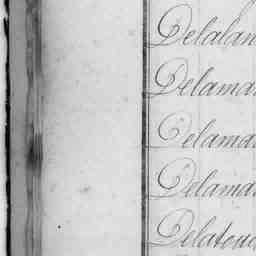 Delalan
Delamar
Delamar
Delamar
Delatouc